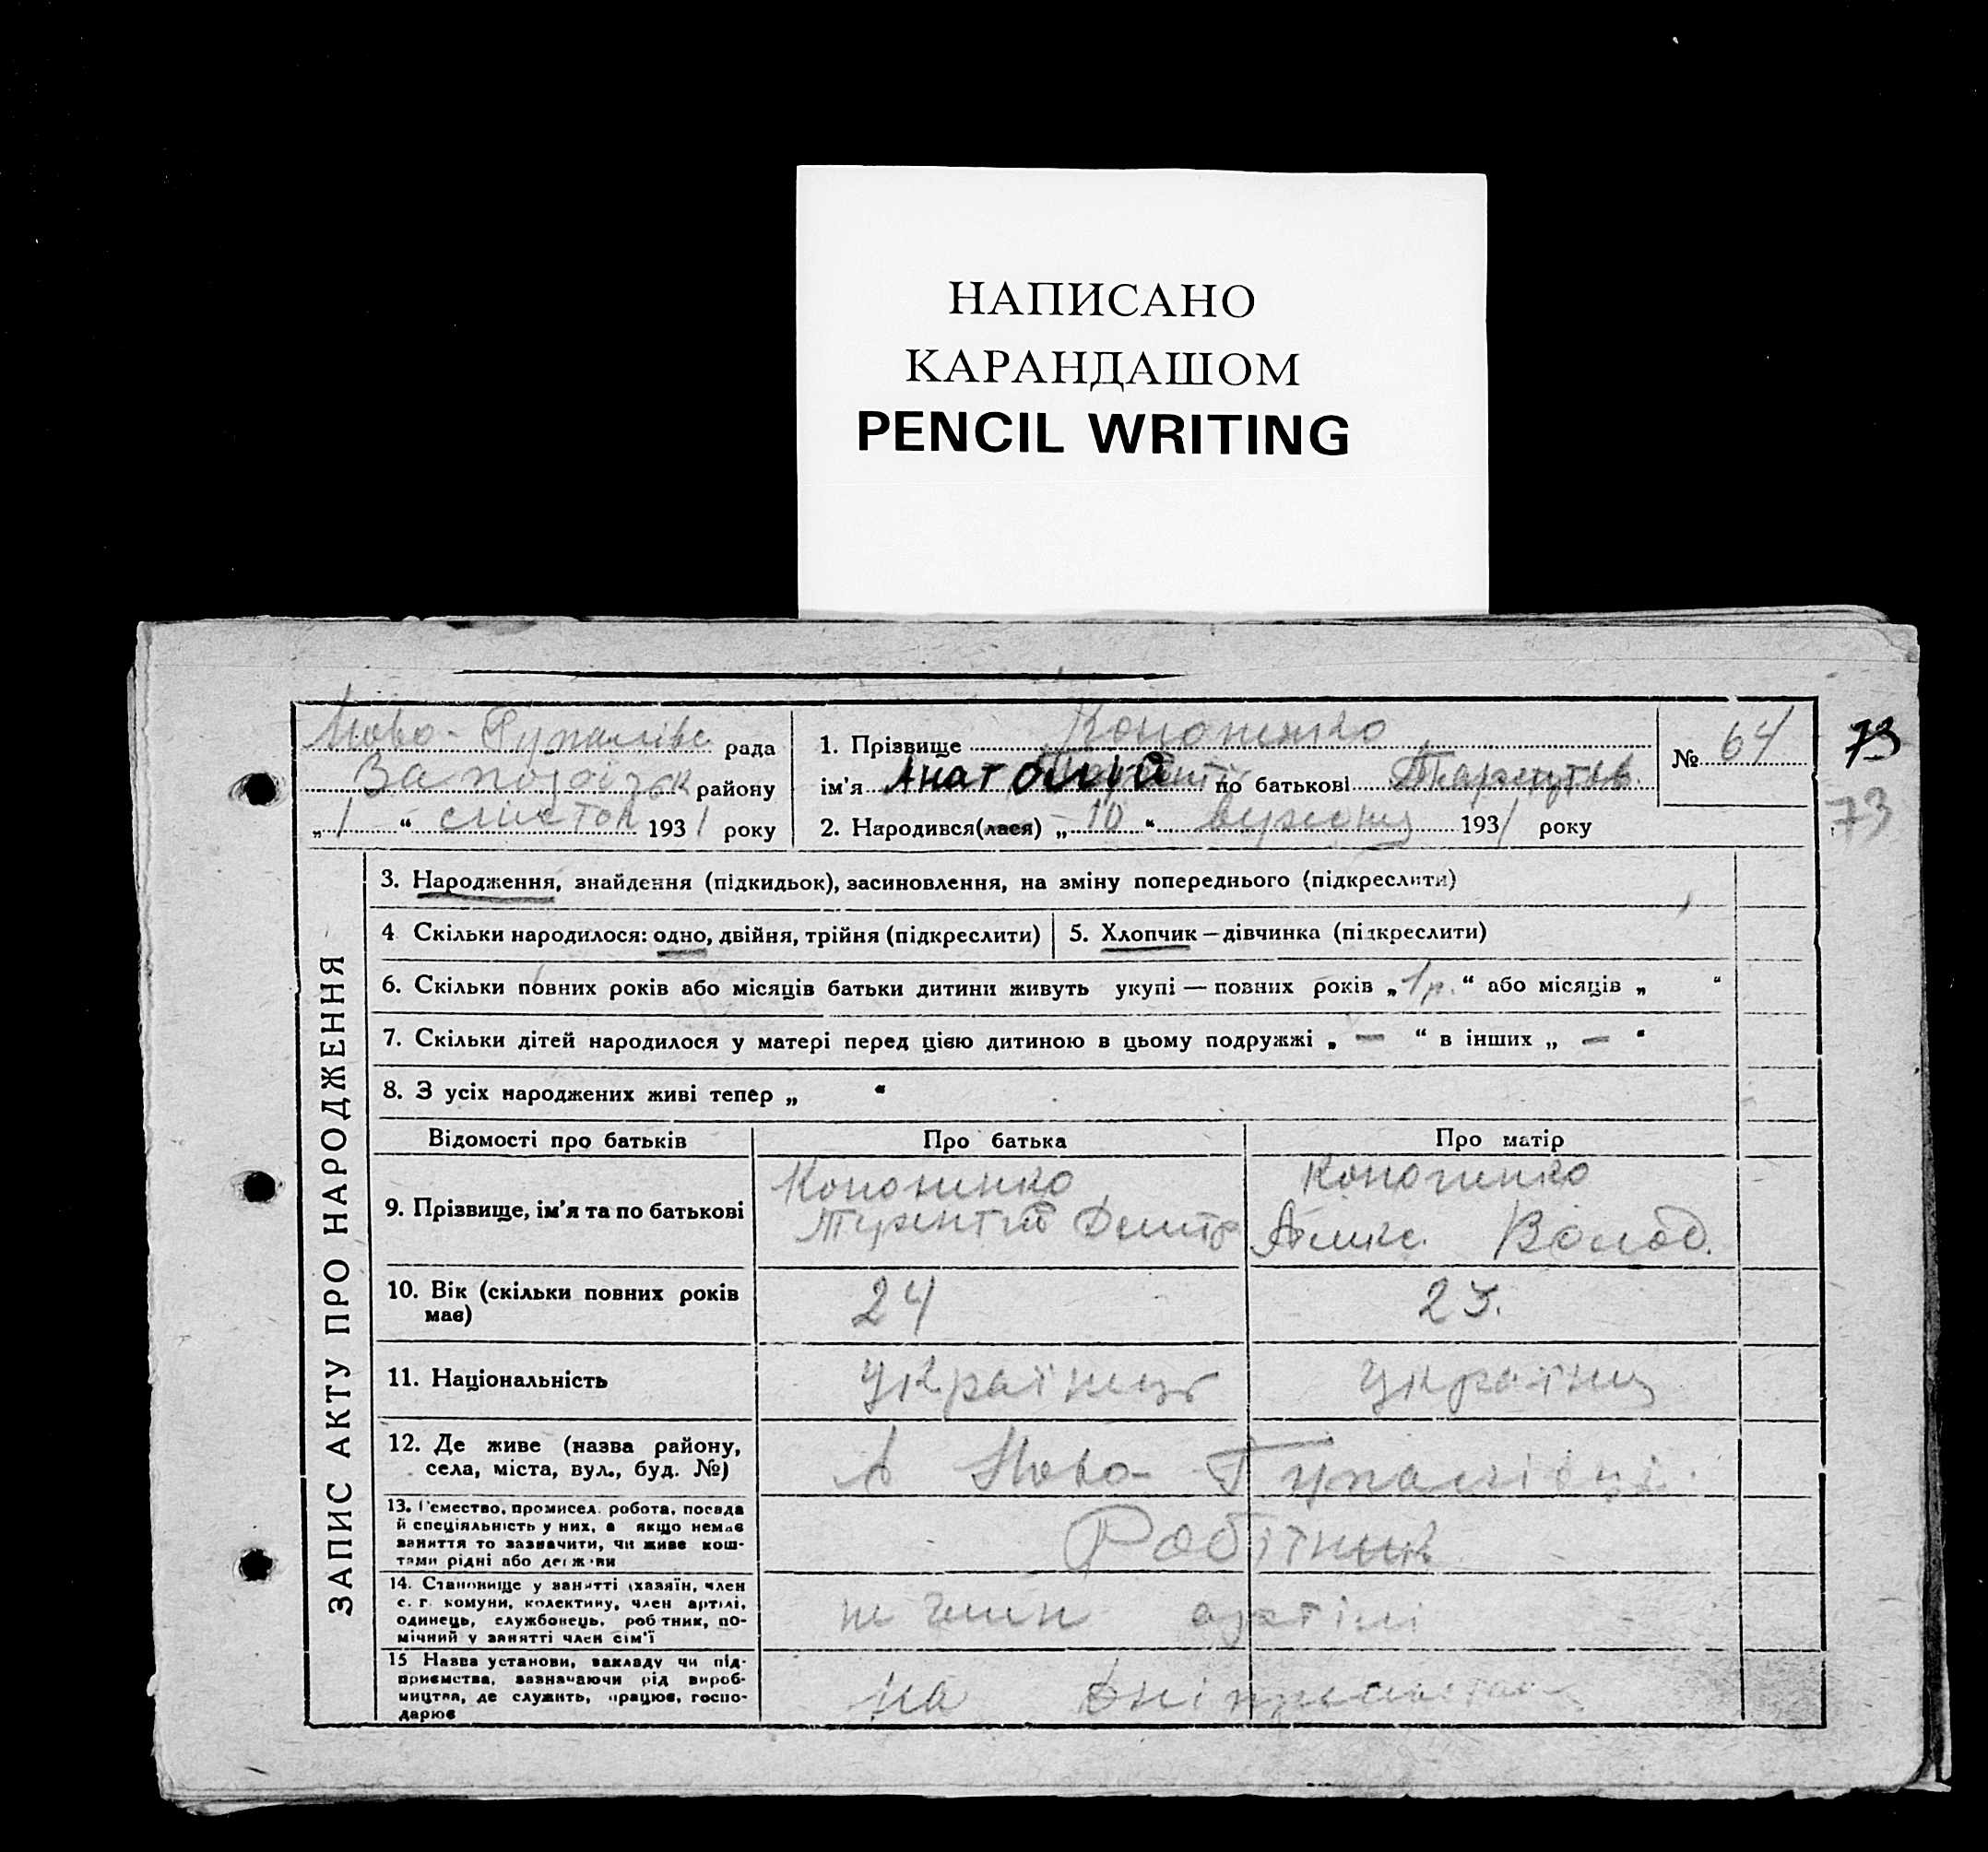 НАПИСАНО
КАРАНДАШОМ
PENCIL WRITING
Ново-Гупалівс рада
Запоріз район у
„ 1 “ листоп 1931 року
1. Прізвище Кононенко
ім'я Анатолій по батькові Терентів.
2. Народився(лася) „ 10 “ вересня 1931 року
№ 64
73
73
ЗАПИС АКТУ ПРО НАРОДЖЕННЯ
3. Народження, знайдення (підкидьок), засиновлення, на зміну попереднього (підкреслити)
4 Скільки народилося: одно, двійня, трійня (підкреслити) 5. Хлопчик — дівчинка (підкреслити)
6. Скільки повних років або місяців батьки дитини живуть укупі — повних років „ 1 р. “ або місяців „ “
7. Скільки дітей народилося у матері перед цією дитиною в цьому подружжі „ — “ в інших „ — “
8. З усіх народжених живі тепер „ “
Відомості про батьків Про батька Про матір
9. Прізвище, ім'я та по батькові
Кононенко
Терентій Дмитр
Кононенко
Олекс. Волод.
10. Вік (скільки повних років
має)
24
23.
11. Національність українець україн
12. Де живе (назва району,
села, міста, вул., буд. №)
Ново-Гупалівці
13. Ремество, промисел, робота, посада
й спеціяльність у них, а якщо немає
заняття то зазначити, чи живе кош-
тами рідні або держави
Робітник
14. Становище у занятті (хазяїн, член
с. г. комуни, колективу, член артілі,
одинець, службовець, робітник, по-
мічний у занятті член сім'ї
не член артілі
15 Назва установи, закладу чи під-
приємства, зазначаючи рід вироб-
ництва, де служить, працює, госпо-
дарює
на